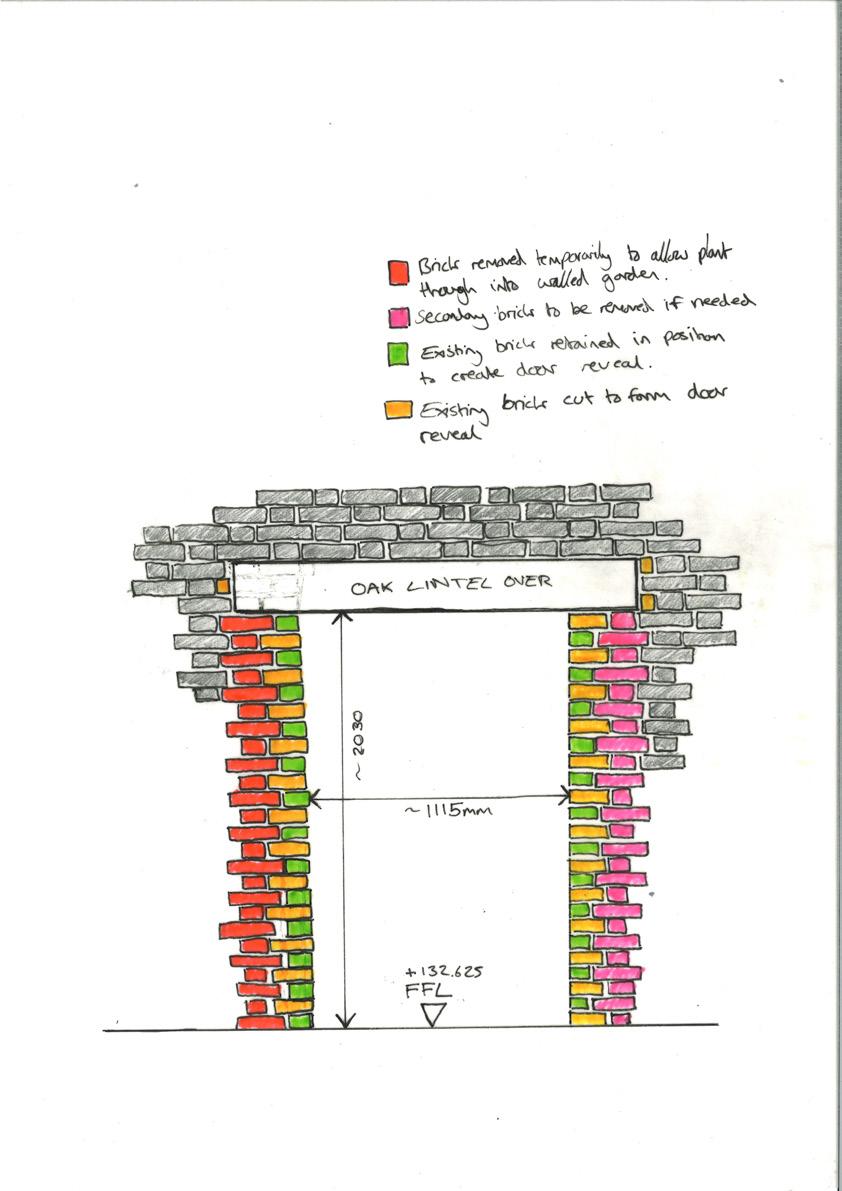 Bricks removed temporarily to allow plant
through into walled garden.
Secondary bricks to be removed if needed
Existing bricks retained in position
to create door reveal.
Existing bricks cut to form door
reveal
OAK LINTEL OVER
~ 2030
~ 1115mm
+132.625
FFL